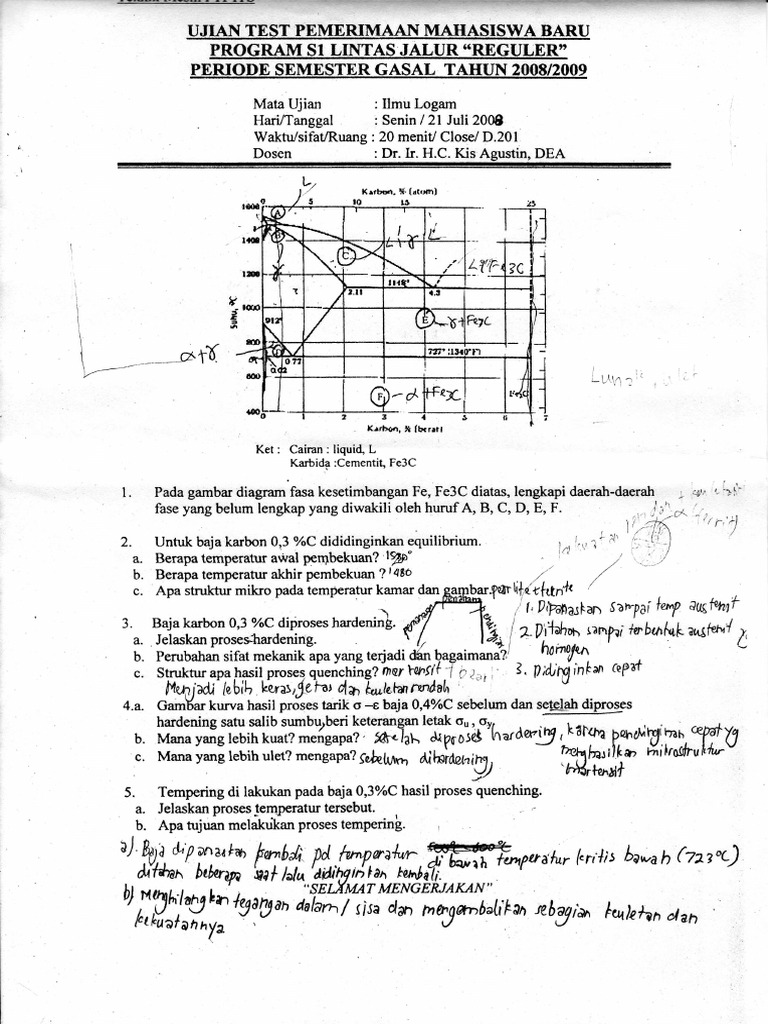 UJIAN TEST PEMERIMAAN MAHASISWA BARU
PROGRAM S1 LINTAS JALUR "REGULER"
PERIODE SEMESTER GASAL TAHUN 2008/2009
Mata Ujian : Ilmu Logam
Hari/Tanggal : Senin / 21 Juli 2008
Waktu/sifat/Ruang : 20 menit/ Close/ D.201
Dosen : Dr. Ir. H.C. Kis Agustin, DEA
L
Karbon, % (atom)
0 5 10 15 25
1600 A
1400 B
C L+γ L
γ L+Fe3C
1200 1148°
2.11 4.3
Suhu, °C
1000
E γ+Fe3C
912°
α+γ 800 D 0.77 727° (1340°F)
0.02
600
F α+Fe3C Fe3C
400
0 1 2 3 4 5 6 7
Karbon, % (berat)
Ket : Cairan : liquid, L
Karbida :Cementit, Fe3C
1. Pada gambar diagram fasa kesetimbangan Fe, Fe3C diatas, lengkapi daerah-daerah
fase yang belum lengkap yang diwakili oleh huruf A, B, C, D, E, F.
2. Untuk baja karbon 0,3 %C dididinginkan equilibrium.
a. Berapa temperatur awal pembekuan?
b. Berapa temperatur akhir pembekuan ? 1480
c. Apa struktur mikro pada temperatur kamar dan gambar. perlite + ferrite
3. Baja karbon 0,3 %C diproses hardening.
pemanasan penahanan pendinginan
a. Jelaskan proses hardening.
1. Dipanaskan sampai temp austenit
2. Ditahan sampai terbentuk austenit γ
homogen
3. Didinginkan cepat
b. Perubahan sifat mekanik apa yang terjadi dan bagaimana?
c. Struktur apa hasil proses quenching? martensit
Menjadi lebih keras, getas dan keuletan rendah
4.a. Gambar kurva hasil proses tarik σ –ε baja 0,4%C sebelum dan setelah diproses
hardening satu salib sumbu,beri keterangan letak σu , σy
b. Mana yang lebih kuat? mengapa? setelah diproses hardening, karena pendinginan cepat yg
menghasilkan mikrostruktur
martensit
c. Mana yang lebih ulet? mengapa? sebelum dihardening,
5. Tempering di lakukan pada baja 0,3%C hasil proses quenching.
a. Jelaskan proses temperatur tersebut.
b. Apa tujuan melakukan proses tempering.
a). Baja dipanaskan kembali pd temperatur di bawah temperatur kritis bawah (723°C)
ditahan beberapa saat lalu didinginkan kembali.
"SELAMAT MENGERJAKAN"
b) Menghilangkan tegangan dalam / sisa dan mengembalikan sebagian keuletan dan
kekuatannya